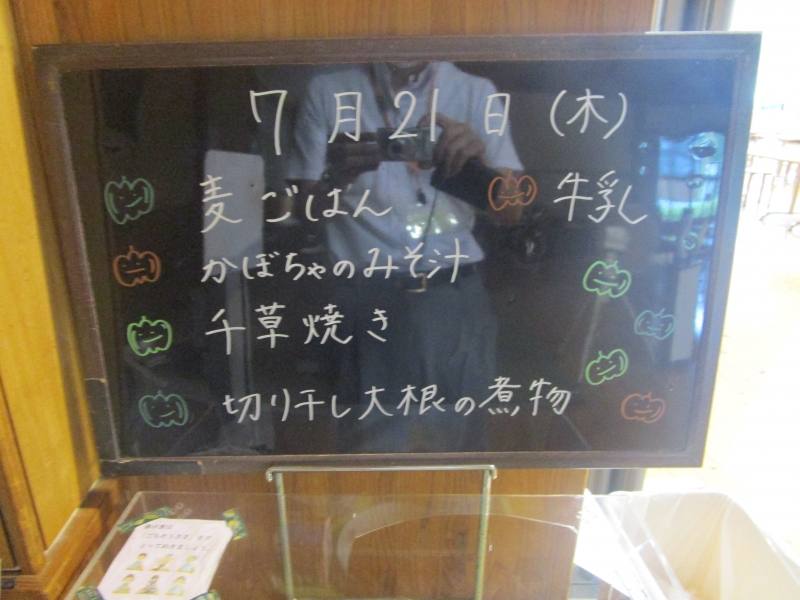 7月21日(木)
麦ごはん 牛乳
かぼちゃのみそ汁
千草焼き
切り干し大根の煮物